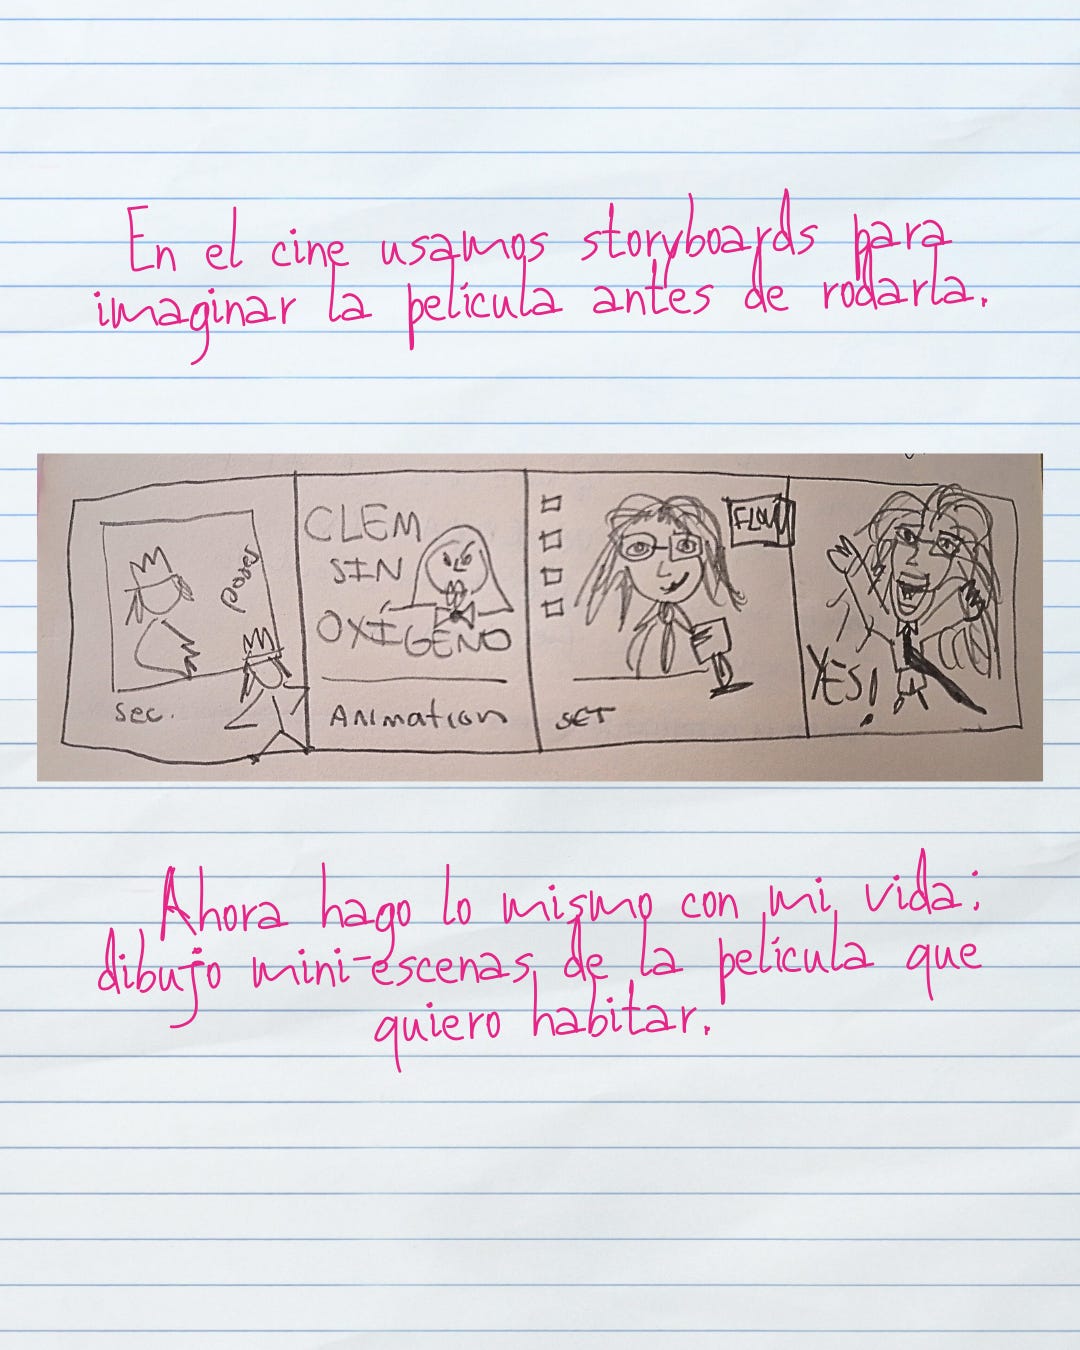 En el cine usamos storyboards para
imaginar la película antes de rodarla.
poder
sec.
CLEM
SIN
OXÍGENO
Animation
FLOW
SET
YES!
Ahora hago lo mismo con mi vida:
dibujo mini-escenas de la película que
quiero habitar.